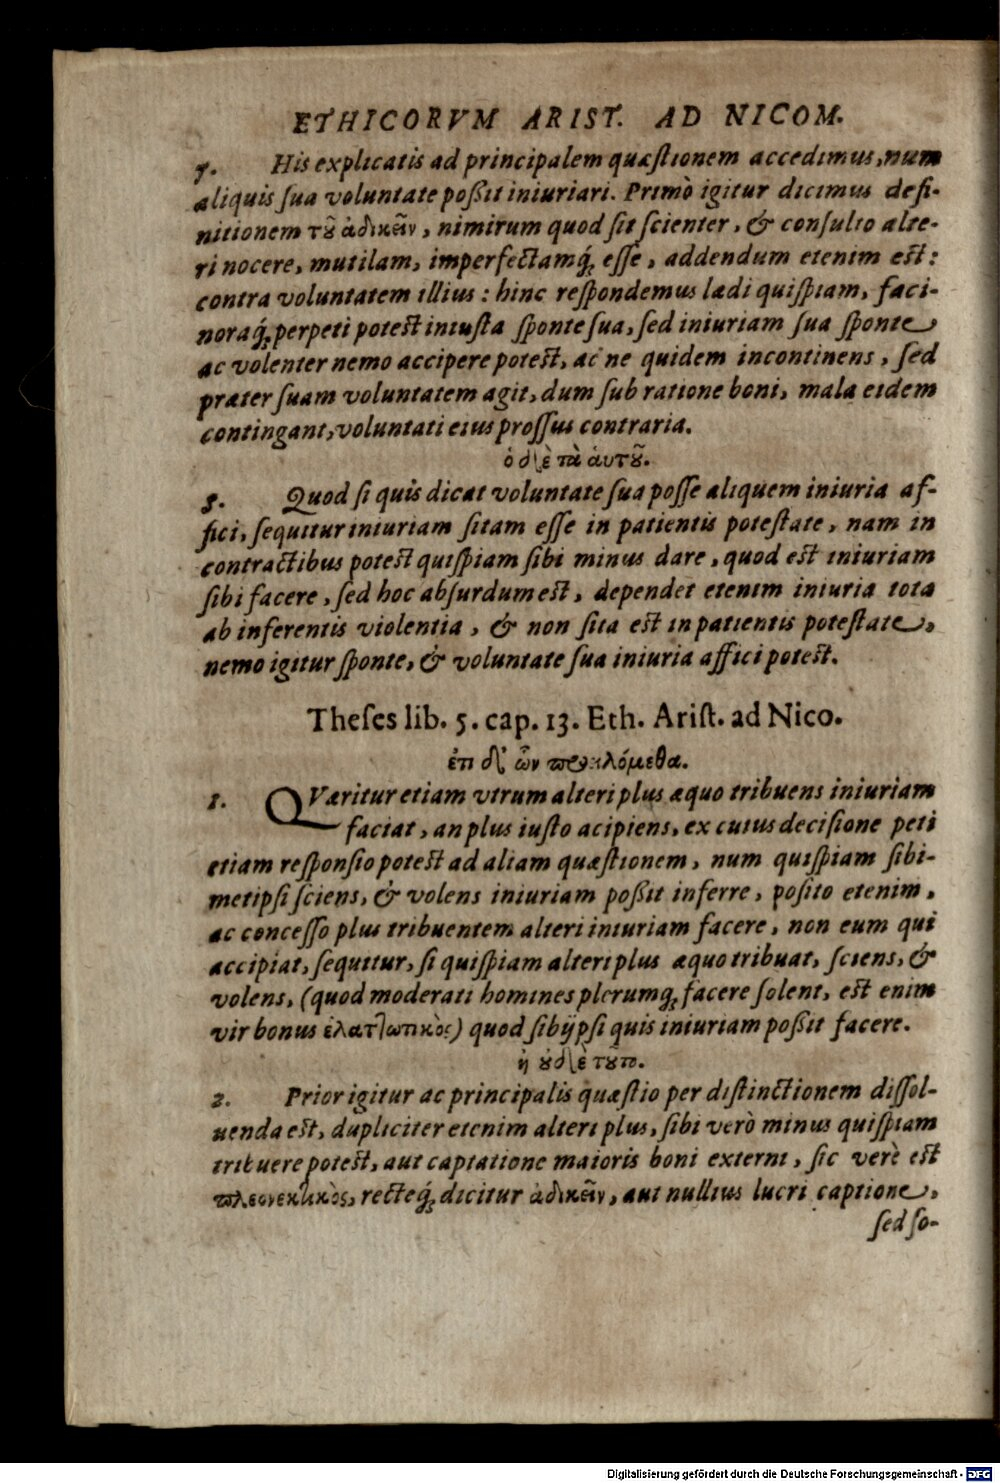 ETHICORVM ARIST. AD NICOM.
7. His explicatis ad principalem quæstionem accedimus, num
aliquis sua voluntate poßit iniuriari. Primò igitur dicimus defi-
nitionem τȣ͂ ἀδικεῖν, nimirum quod sit scienter, & consulto alte-
ri nocere, mutilam, imperfectamq́; esse, addendum etenim est:
contra voluntatem illius: hinc respondemus lædi quispiam, faci-
noraq́; perpeti potest iniusta sponte sua, sed iniuriam sua sponte
ac volenter nemo accipere potest, ac ne quidem incontinens, sed
præter suam voluntatem agit, dum sub ratione boni, mala eidem
contingant, voluntati eius prossus contraria.
ὁ δὲ τὰ αυτȣ͂.
8. Quod si quis dicat voluntate sua posse aliquem iniuria af-
fici, sequitur iniuriam sitam esse in patientis potestate, nam in
contractibus potest quispiam sibi minus dare, quod est iniuriam
sibi facere, sed hoc absurdum est, dependet etenim iniuria tota
ab inferentis violentia, & non sita est in patientis potestate,
nemo igitur sponte, & voluntate sua iniuria affici potest.
Theses lib. 5. cap. 13. Eth. Arist. ad Nico.
ἐπι δ' ὧν προειλόμεθα.
1. QVæritur etiam vtrum alteri plus æquo tribuens iniuriam
faciat, an plus iusto acipiens, ex cuius decisione peti
etiam responsio potest ad aliam quæstionem, num quispiam sibi-
metipsi sciens, & volens iniuriam poßit inferre, posito etenim,
ac concesso plus tribuentem alteri iniuriam facere, non eum qui
accipiat, sequitur, si quispiam alteri plus æquo tribuat, sciens, &
volens, (quod moderati homines plerumq; facere solent, est enim
vir bonus ἐλαττωτικὸς) quod sibijpsi quis iniuriam poßit facere.
ἠ ȣ̓δὲ τȣ͂το.
2. Prior igitur ac principalis quæstio per distinctionem dissol-
uenda est, dupliciter etenim alteri plus, sibi verò minus quispiam
tribuere potest, aut captatione maioris boni externi, sic verè est
πλεονεκτικὸς, recteq́; dicitur ἀδικεῖν, aut nullius lucri captione,
sed so-
Digitalisierung gefördert durch die Deutsche Forschungsgemeinschaft - DFG